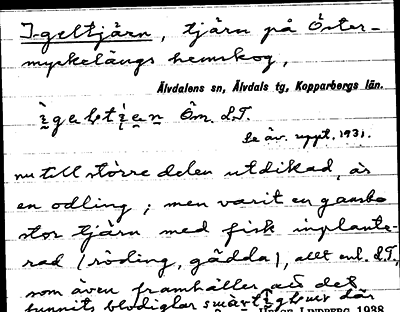 Igeltjärn, tjärn på Öster-
myckelängs hemskog,
Älvdalens sn, Älvdals tg, Kopparbergs län.
Öm. L.T.
Se äv. uppt. 1931.
nu till större delen utdikad, är
en odling; men varit en ganska
stor tjärn med fisk inplante-
rad (röding, gädda), allt enl. L.T.,
som även framhåller att det
funnits blodiglar där
LINDBERG 1938